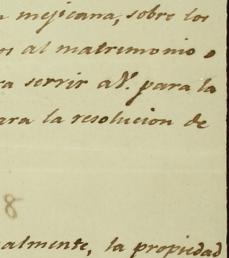 mejicana, sobre los
al matrimonio o
servir a V. para la
para la resolucion de
8
almente, la propiedad